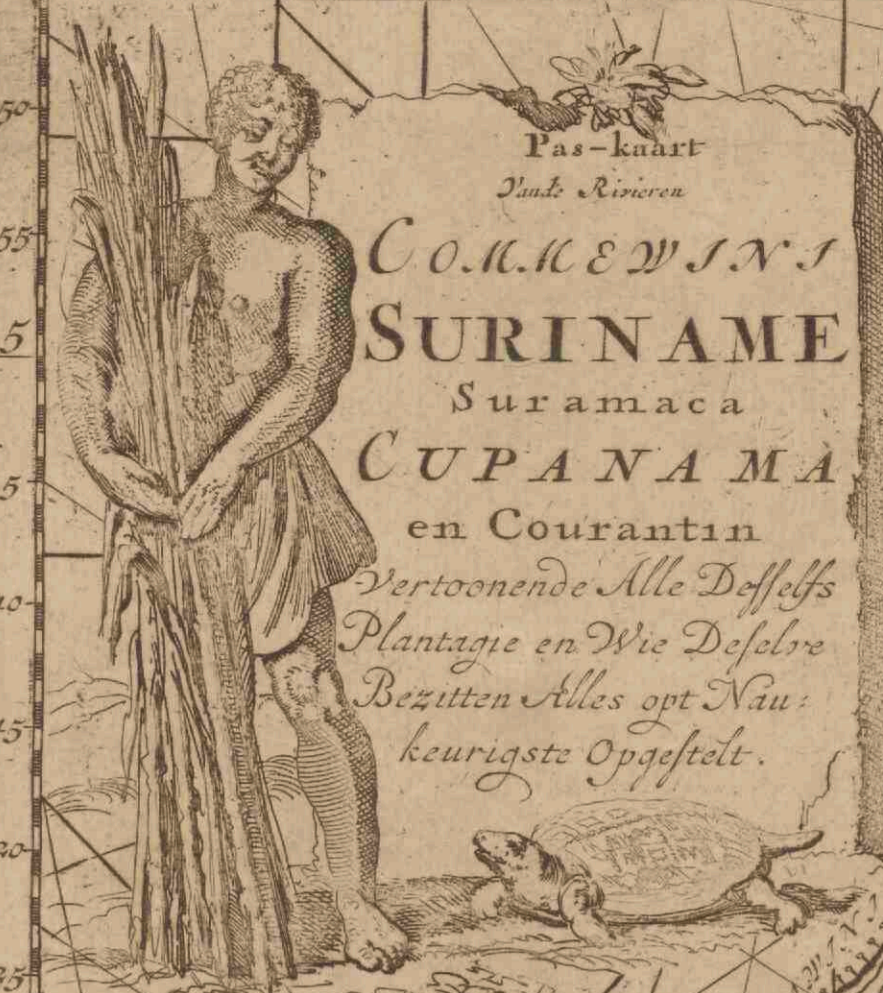 Pas-kaart
Vande Rivieren
COMMEWINI
SURINAME
Suramaca
CUPANAMA
en Courantin
Vertoonende Alle Desselfs
Plantagie en Wie Deselve
Bezitten Alles opt Nau:
keurigste Opgestelt.
50
55
5
5
10
15
20
25
WINI